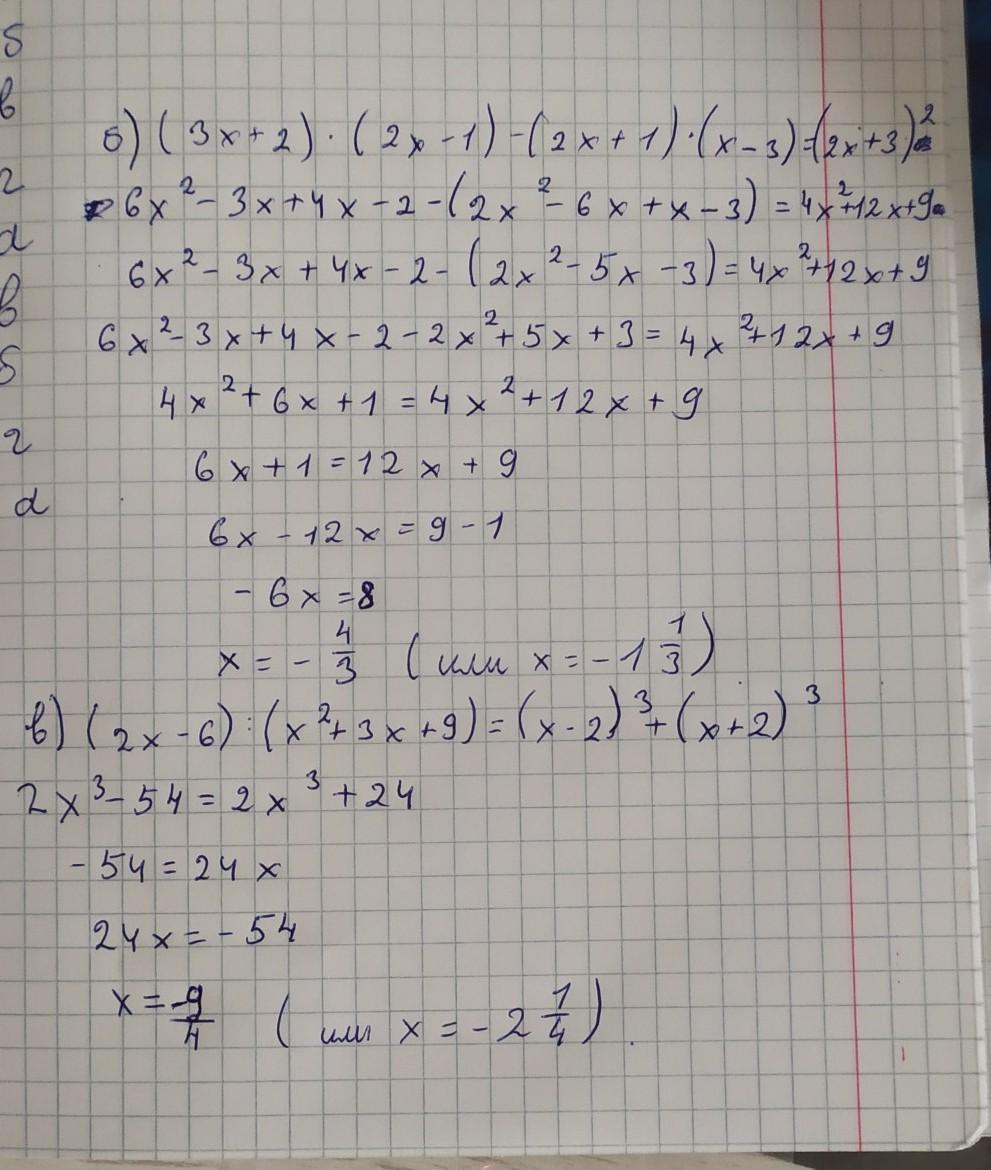 б) (3x+2)·(2x-1)-(2x+1)·(x-3)=(2x+3)²
6x²-3x+4x-2-(2x²-6x+x-3)=4x²+12x+9
6x²-3x+4x-2-(2x²-5x-3)=4x²+12x+9
6x²-3x+4x-2-2x²+5x+3=4x²+12x+9
4x²+6x+1=4x²+12x+9
6x+1=12x+9
6x-12x=9-1
-6x=8
x=-4/3 (или x=-1 1/3)
в) (2x-6):(x²+3x+9)=(x-2)³+(x+2)³
2x³-54=2x³+24
-54=24x
24x=-54
x=-9/4 (или x=-2 1/4).
б
в
г
д
в
б
г
д